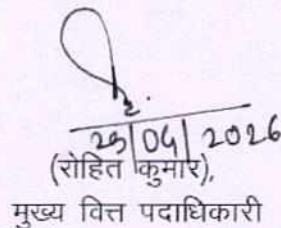 25/04/2026
(रोहित कुमार),
मुख्य वित्त पदाधिकारी